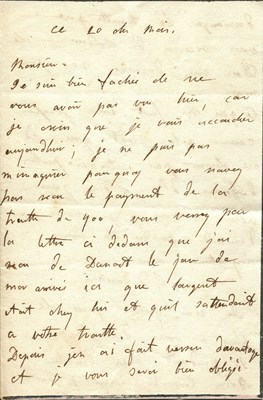 ce 20 du mois.
Monsieur.
Je suis bien fachée de ne
vous avoir pas vu hier, car
je crois que je vais accoucher
aujourdhui; je ne puis pas
m imaginer pourquoy vous navez
pas recu le payment de la
traitte de 400, vous verrez par
la lettre ci dedans que jai
recu de le jour de
mon arrivée ici que largent
etait chez lui et quil sattendait
a votre traitte.
Depuis jen ai fait verser davantage
et je vous serai bien obligé